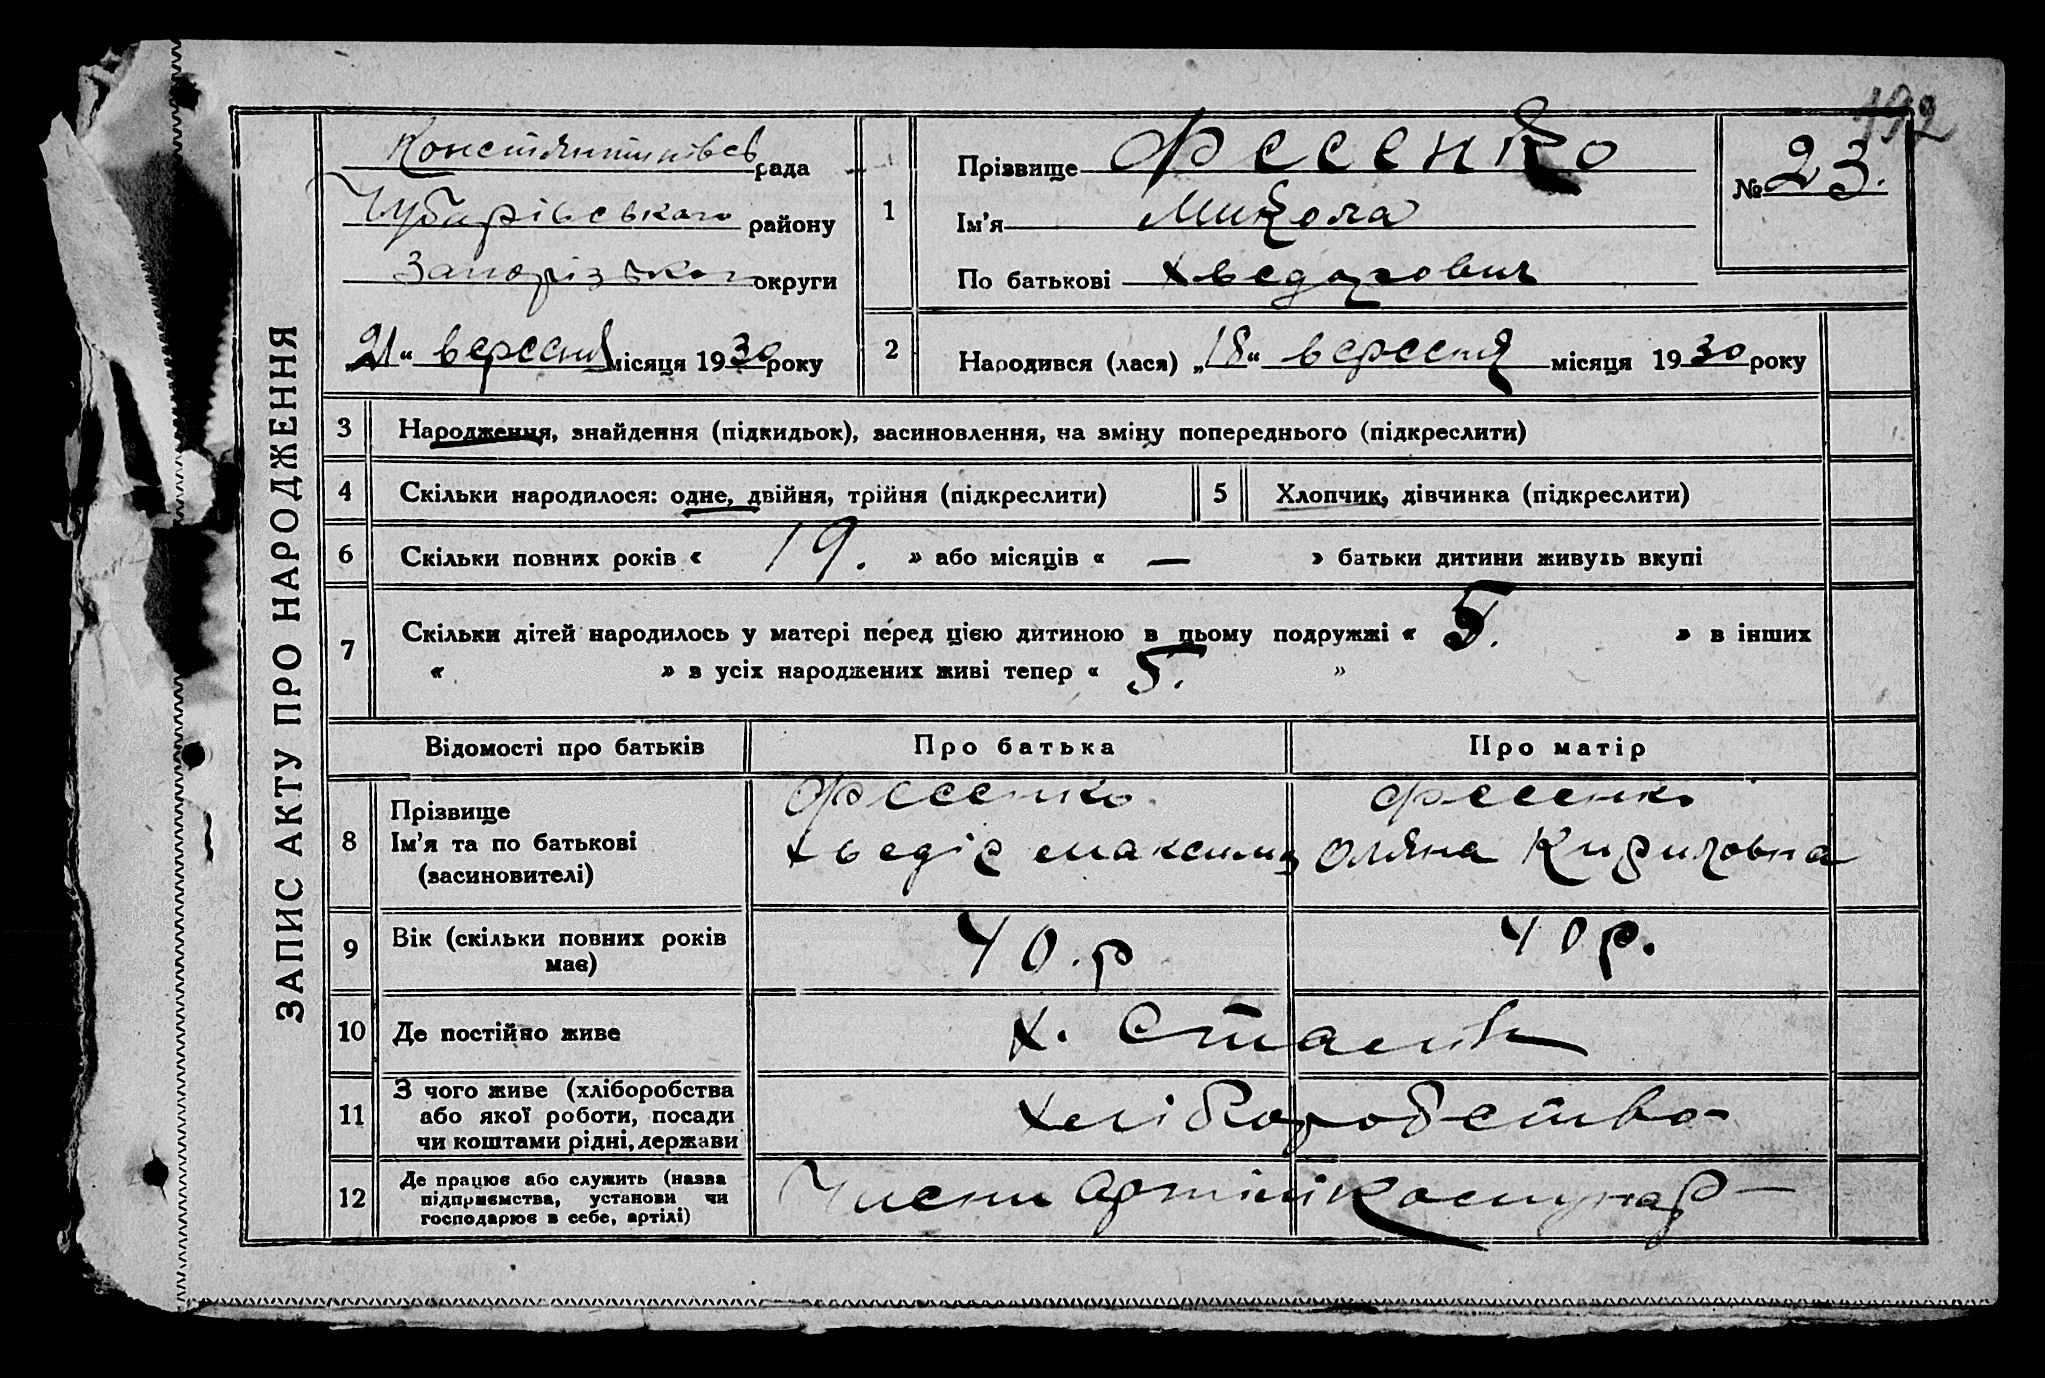 192
ЗАПИС АКТУ ПРО НАРОДЖЕННЯ
Констянтинівсь рада
Чубарівського району
Запорізького округи
„21“ вересня місяця 1930 року
1
Прізвище Фесенко
Ім'я Микола
По батькові Хведорович
№ 23.
2
Народився (лася) „18“ вересня місяця 1930 року
3 Народження, знайдення (підкидьок), засиновлення, на зміну попереднього (підкреслити)
4 Скільки народилося: одне, двійня, трійня (підкреслити)
5 Хлопчик, дівчинка (підкреслити)
6 Скільки повних років « 19. » або місяців « — » батьки дитини живуть вкупі
7 Скільки дітей народилось у матері перед цією дитиною в цьому подружжі « 5. » в інших
« » в усіх народжених живі тепер « 5. »
Відомості про батьків Про батька Про матір
8 Прізвище
Ім'я та по батькові
(засиновителі)
Фесенко
Хведір Максимо
Фесенко
Оляна Кириловна
9 Вік (скільки повних років
має)
40.р
40 р.
10 Де постійно живе
х.
11 З чого живе (хліборобства
або якої роботи, посади
чи коштами рідні, держави
Хліборобство
12 Де працює або служить (назва
підприємства, установи чи
господарює в себе, артілі)
Члени Артілі Комунар